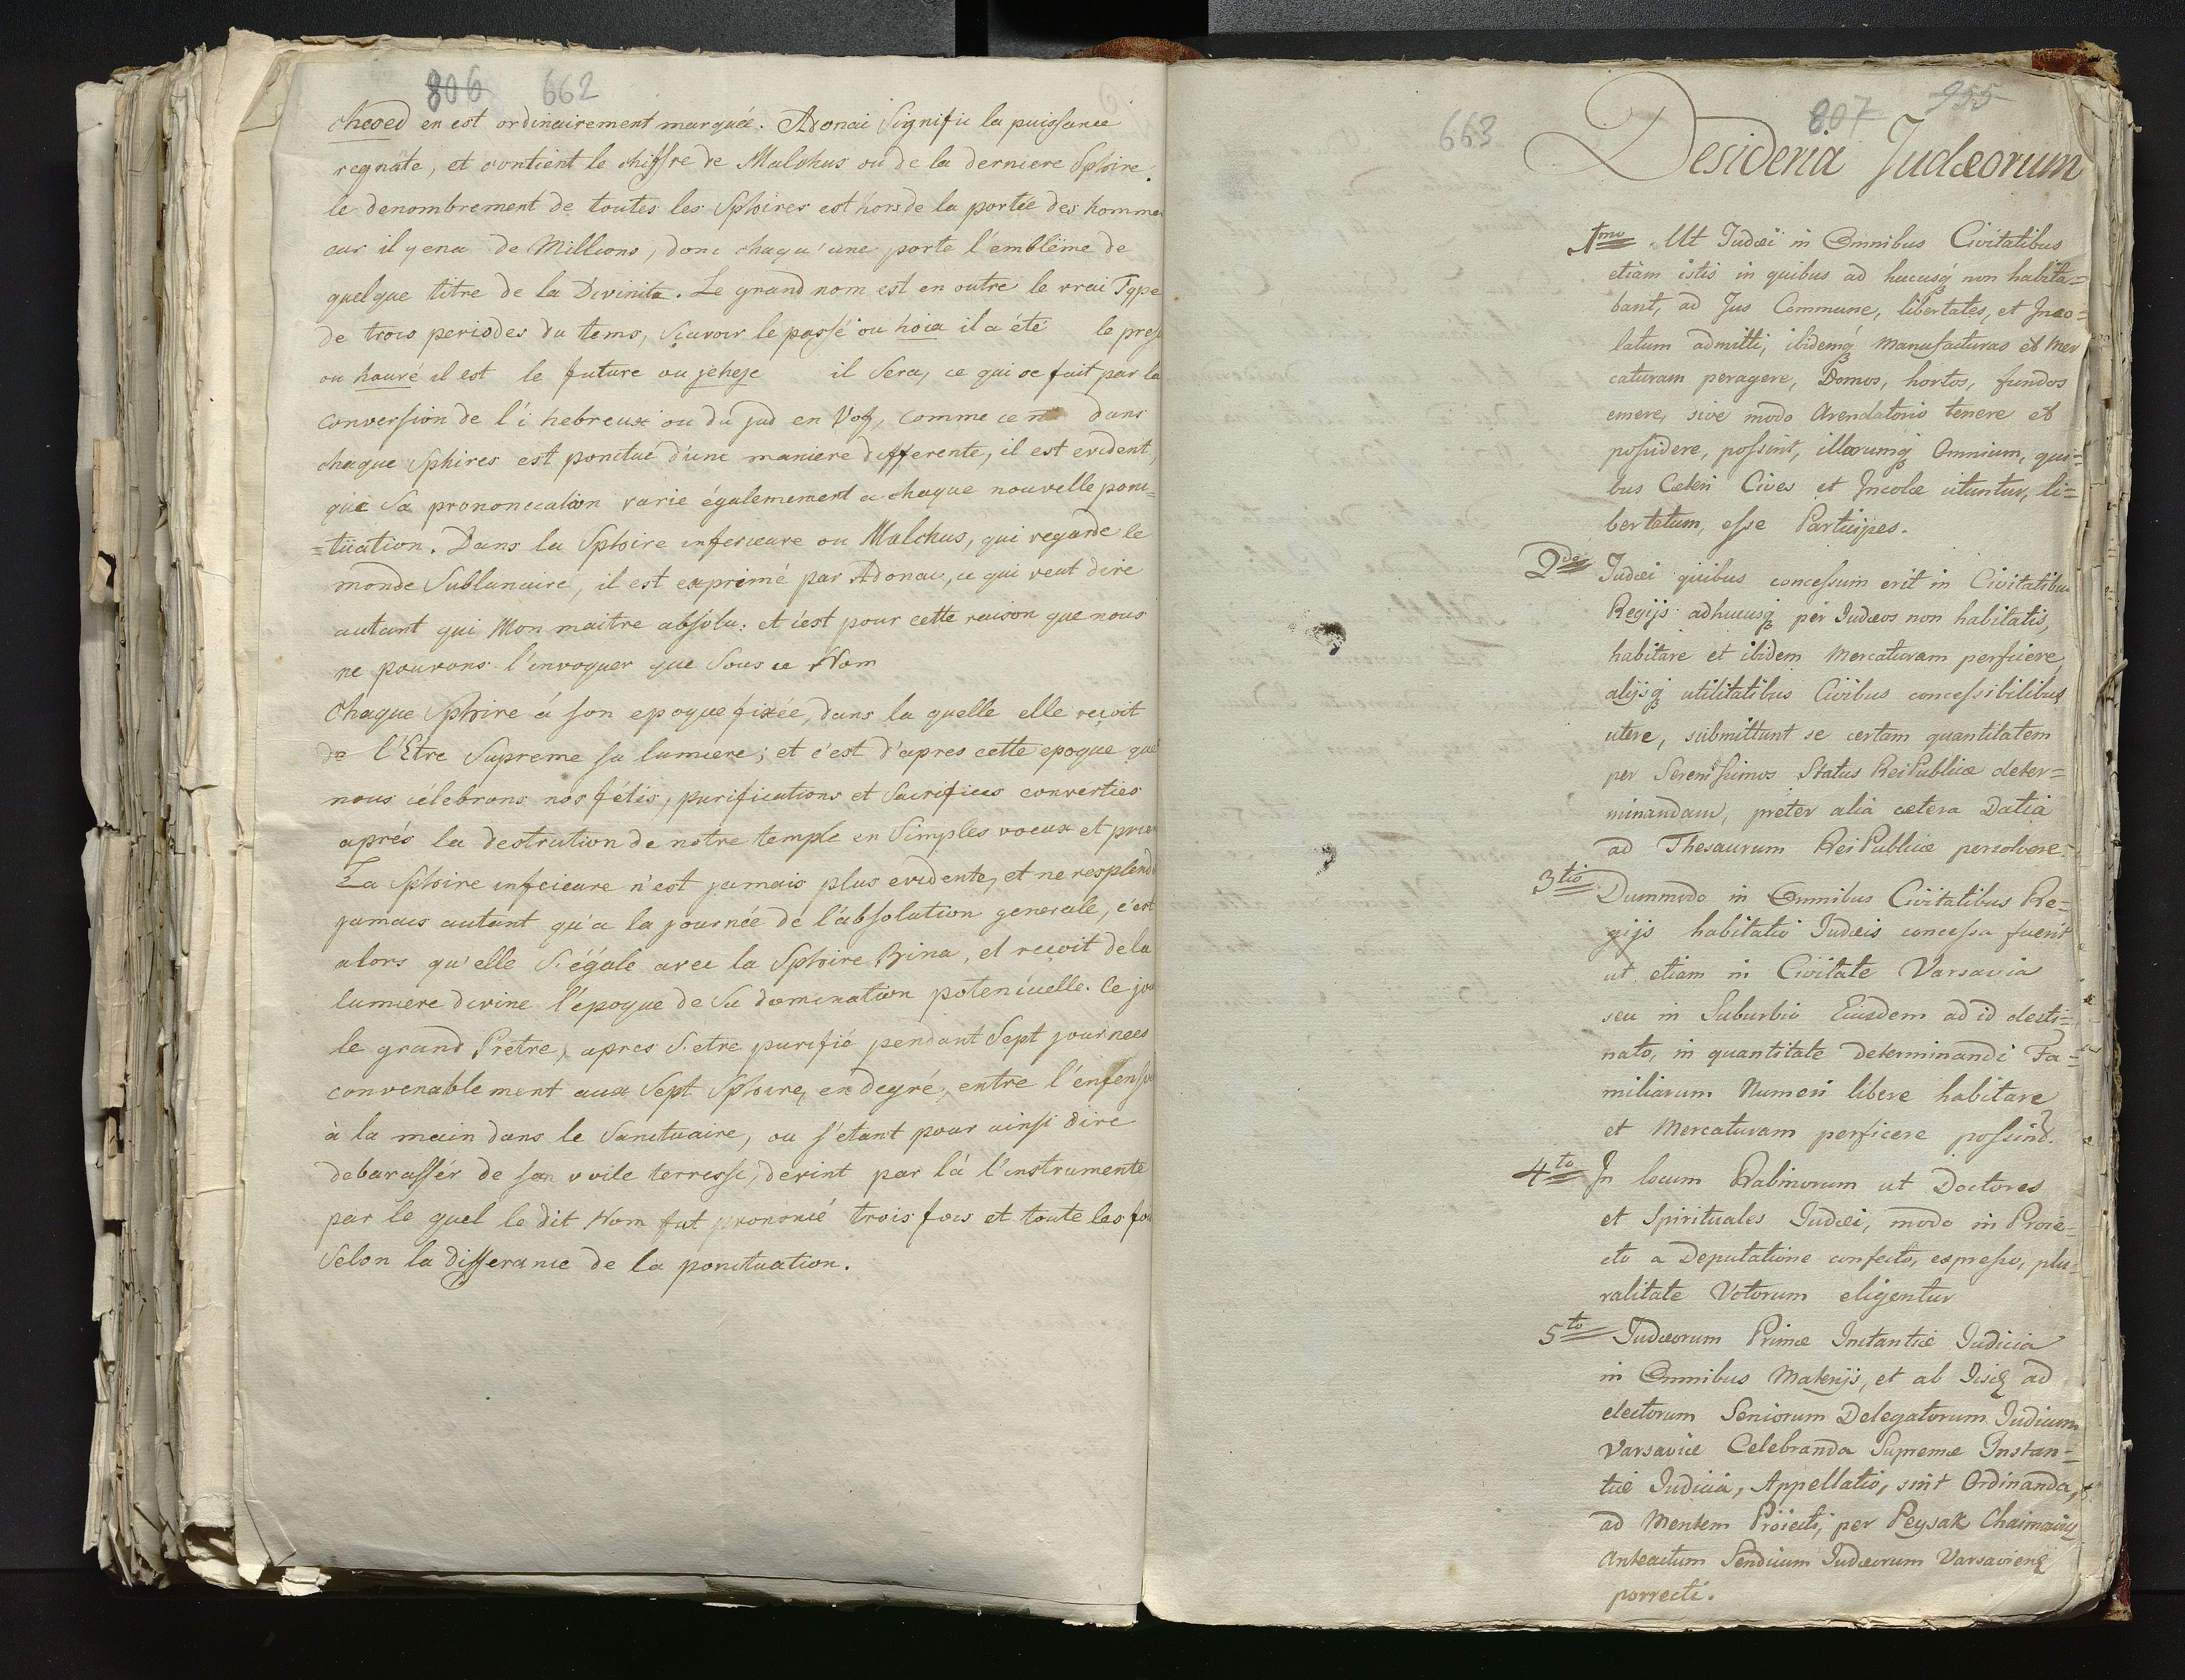 806 662
chesed en est ordinairement marquée. Adonai signifie la puissance
regnate, et contient le chiffre de Malchus ou de la derniere Sphire.
le denombrement de toutes les Sphires est hors de la portée des homme
car il y en a de Millions, donc chaqu'une porte l'emblême de
quelque titre de la Divinita. Le grand nom est en outre le vrai Type
de trois periodes du tems, sçavoir le passé ou hoia il a été le prese
ou hauvé il est le future ou jeheje il sera, ce qui se fait par la
conversion de l'i hebreux ou du jud en Vof, comme ce n dans
chaque Sphires est ponctué d'une maniere differente, il est evident,
que sa prononciation varie égalemement a chaque nouvelle ponc=
=tuation. Dans la Sphire inferieure ou Malchus, qui regarde le
monde Sublunaire, il est exprimé par Adonai, ce qui veut dire
autant qui Mon maitre absolu: et c'est pour cette raison que nous
ne pouvons l'invoquer que sous ce Nom
Chaque Sphire á son epoque fixée, dans la quelle elle reçoit
de l'Etre Supreme sa lumiere; et c'est d'apres cette epoque que
nous célebrons nos fétes, purifications et Sacrifices converties
aprés la destrution de notre temple en Simples voeux et prier
La Sphire infeieure n'est jamais plus evidente, et ne resplend
jamais autant qu'a la journée de l'absolution generale, c'est
alors qu'elle S'égale avec la Sphire Bina, et reçoit de la
lumiere divine l'epoque de sa domination potencielle. Ce jou
le grand Prètre, apres S'etre purifié pendant Sept journees
convenablement aux Sept Sphire, en degré, entre l'enfenso
à la main dans le Sanctuaire, ou s'etant pour ainsi dire
debarassér de son voile terresse, devint par là l'instrumente
par le quel le dit Nom fut prononcé trois fois et toute les foi
Selon la differance de la ponctuation.
663 807 955
Desideria Judæorum
1mo Ut Judæi in Omnibus Civitatibus
etiam istis in quibus ad hucusq; non habita=
bant, ad Jus Commune, libertates, et Inco=
latum admitti, ibidemq; Manufacturas et Mer
caturam peragere, Domos, hortos, fundos
emere, sive modo Arendatorio tenere et
possidere, possint, illorumq; Omnium, qui=
bus Cæteri Cives et Incolæ utuntur, li=
bertatum, esse Participes.
2do Judæi quibus concessum erit in Civitatibus
Regijs adhucusq; per Judæos non habitatis,
habitare et ibidem Mercaturam perficere,
alijsq; utilitatibus Civibus concessibilibus
utere, submittunt se certam quantitatem
per Serenissimos Status ReiPublicæ deter=
minandam, preter alia cætera Datia
ad Thesaurum ReiPublicæ persolvere.
3tio Dummodo in Omnibus Civitatibus Re=
gijs habitatio Judæis concessa fuerit
ut etiam in Civitate Varsavia
seu in Suburbio Eiusdem ad id desti=
nato, in quantitate determinandi Fa=
miliarum Numeri libere habitare
et Mercaturam perficere possind.
4to In locum Rabinorum ut Doctores
et Spirituales Judæi, modo in Proie=
cto a Deputatione confecto, espresso, plu=
ralitate Votorum eligentur
5to Judæorum Primæ Instantiæ Judicia
in Omnibus Materijs, et ab Iisq; ad
electorum Seniorum Delegatorum Judicum
Varsaviæ Celebranda Supremæ Instan=
tiæ Judicia, Appellatio, sint Ordinanda,
ad Mentem Proiecti, per Peysak Chaimowicz
Anteactum Sendicum Judæorum Varsavienq
porrecti.